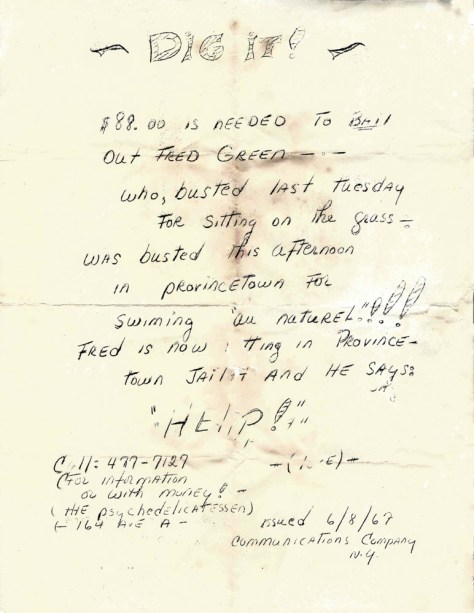 DIG IT!
$88.00 is NEEDED To BAil
OUT FRED GREEN —
who, busted last Tuesday
FOR Sitting on the grass —
WAS busted this afternoon
in provincetown For
Swiming "au naturel"!!!
FRED is now in Province-
town JAil AND HE SAYS:
"HElP!"
CAll: 477-7129
(For information
or with money! —
(tHE psychedelicatessen)
164 AvE A —
issued 6/8/67
communications Company
N.Y.